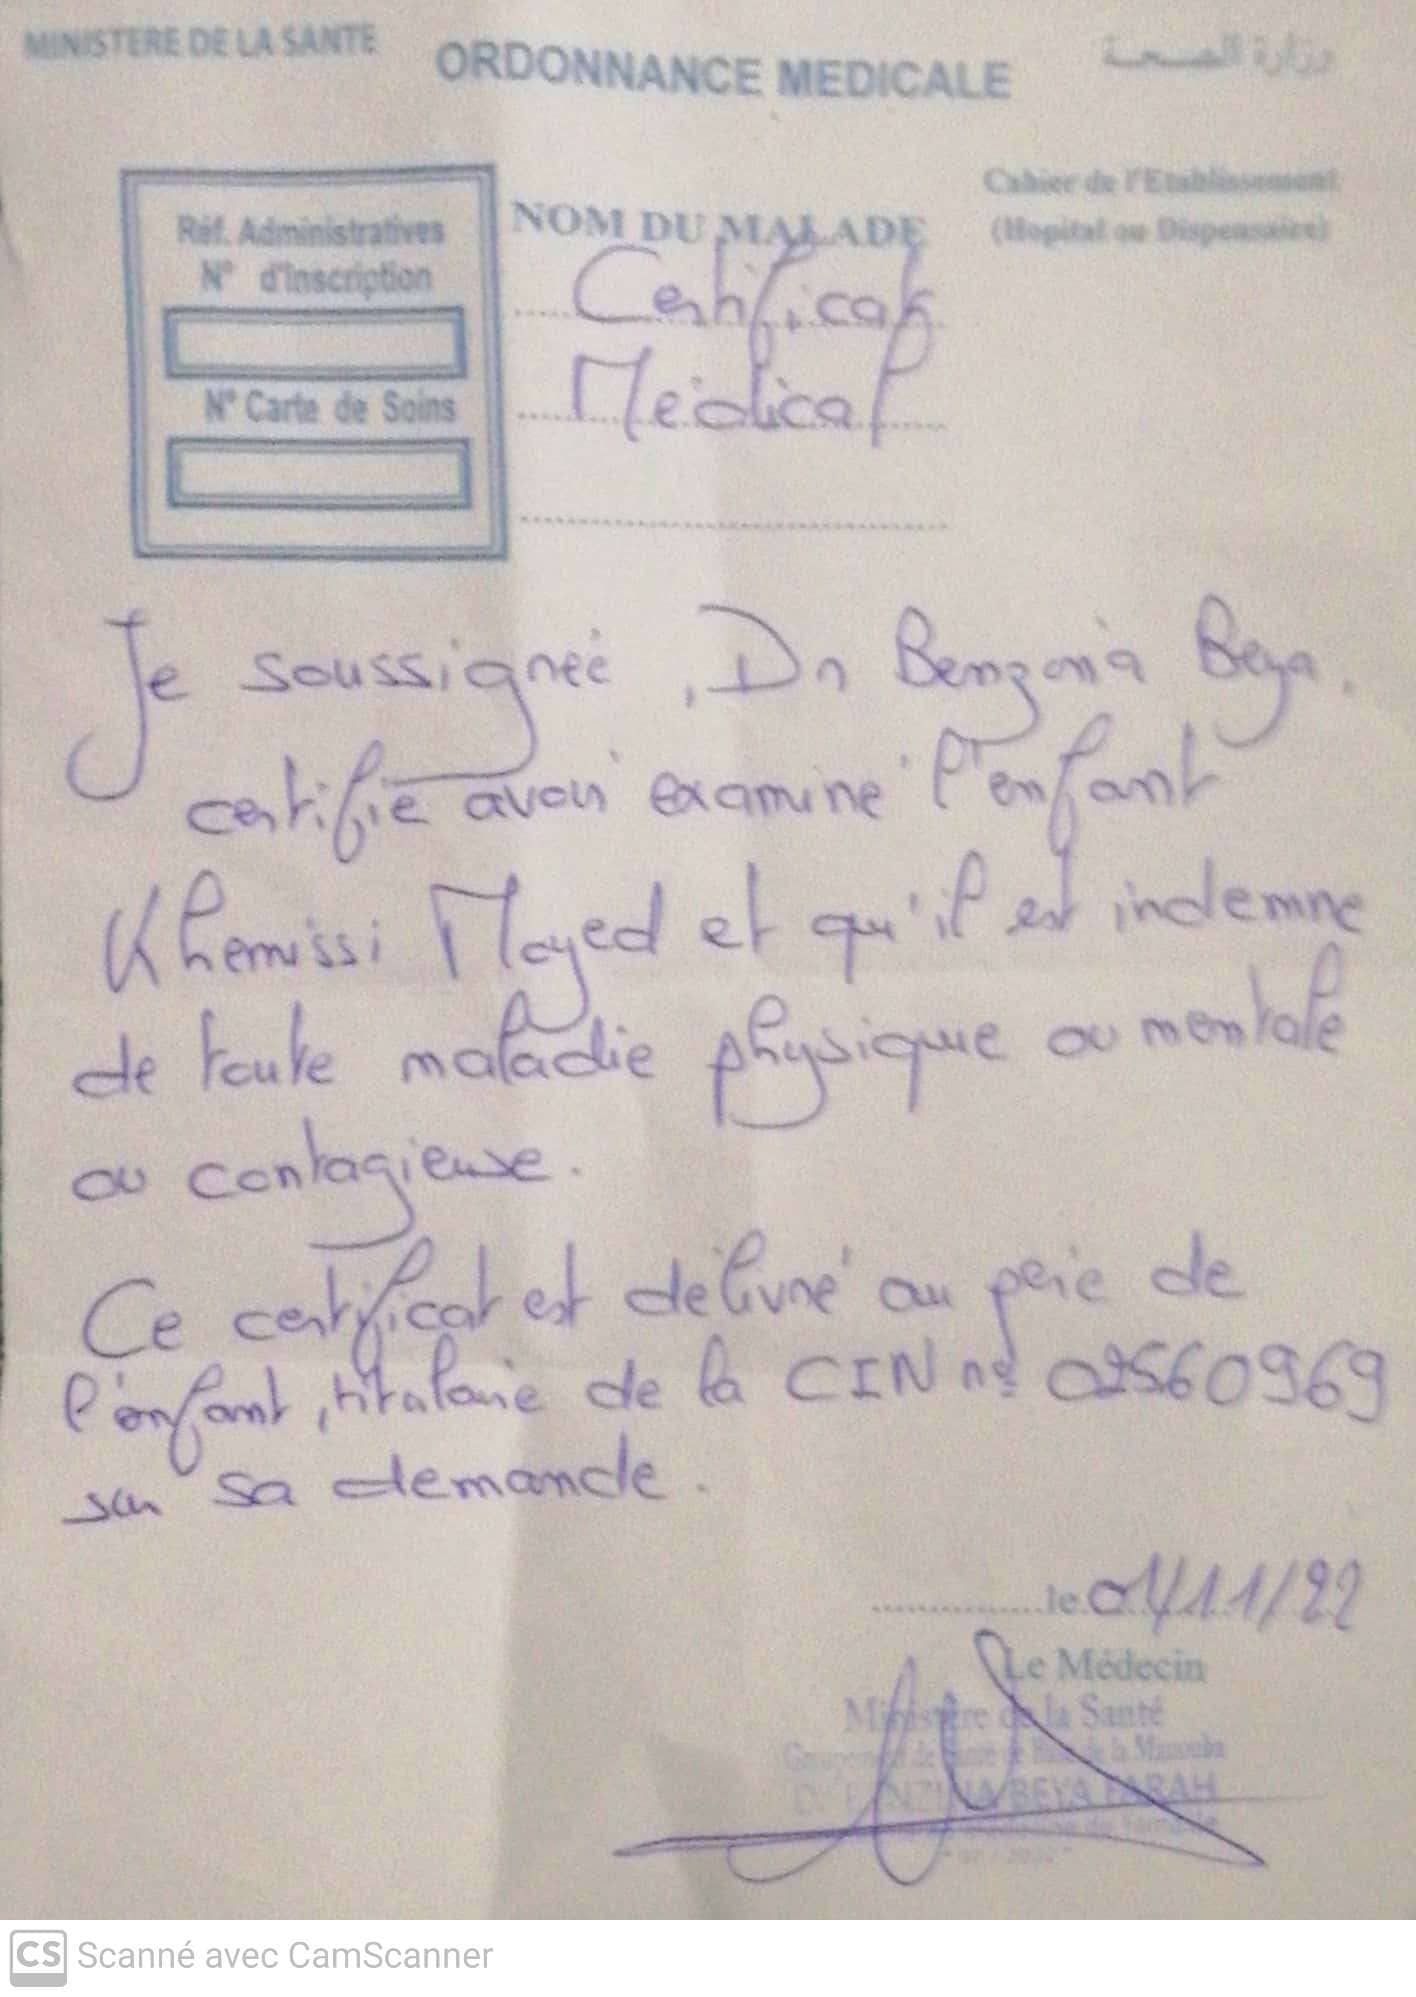 MINISTERE DE LA SANTE
ORDONNANCE MEDICALE
وزارة الصحة
Réf. Administratives
N° d'Inscription
N° Carte de Soins
NOM DU MALADE
Cahier de l'Etablissement
(Hopital ou Dispensaire)
Certificat
Médical
Je soussignée, Dr Benzina Beya,
certifie avoir examiné l'enfant
Khemissi Mayed et qu'il est indemne
de toute maladie physique ou mentale
ou contagieuse.
Ce certificat est délivré au père de
l'enfant, titulaire de la CIN n°
sur sa demande.
le 01/11/22
Le Médecin
Ministère de la Santé
de la Manouba
BEYA FARAH
CS Scanné avec CamScanner